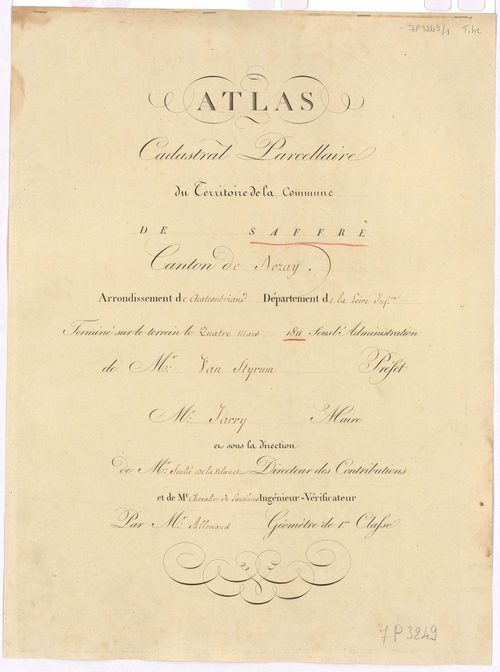 7P3249/1 Titre
ATLAS
Cadastral Parcellaire
du Territoire de la Commune
DE SAFFRÉ
Canton de Nozay.
Arrondissement de Chateaubriand Département de la Loire Inf.re
Terminé sur le terrein le Quatre Mars 1811 Sous l'Administration
de Mr. Van Styrum Préfet
Mr. Jarry Maire
et sous la direction
de Mr. de la Directeur des Contributions
et de Mr. Chevalier de Ingénieur-Vérificateur
Par Mr. Allemand Géomètre de 1re Classe
7P3249